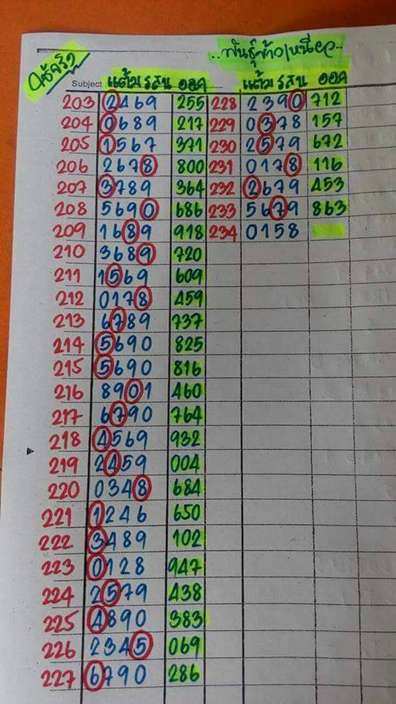 ..พันธุ์ข้าวเหนียว..
Subject แต้ม รสน ออก แต้ม รสน ออก
203 2469 255 228 2390 712
204 0689 217 229 0378 157
205 1567 371 230 2579 672
206 2678 800 231 0178 116
207 3789 364 232 2679 453
208 5690 686 233 5679 863
209 1689 918 234 0158
210 3689 720
211 1569 609
212 0178 459
213 6789 737
214 5690 825
215 5690 816
216 8901 460
217 6790 764
218 4569 932
219 2459 004
220 0348 684
221 1246 650
222 3489 102
223 0128 947
224 2579 438
225 4890 383
226 2345 069
227 6790 286